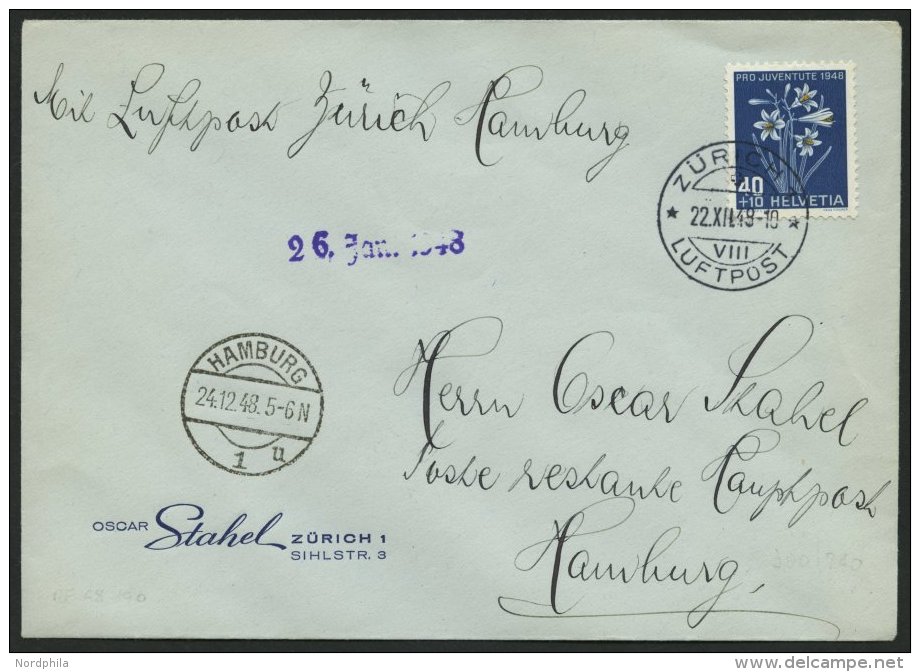 Mit Luftpost Zürich Hamburg
PRO JUVENTUTE 1948
40
+10 HELVETIA
ZÜRICH
22.XII.48-10
VIII
LUFTPOST
26. Jan. 1948
HAMBURG
24.12.48.5-6N
1 u
Herrn Oscar Stahel
Poste restante Hauptpost
Hamburg,
OSCAR Stahel ZÜRICH 1
SIHLSTR. 3
Nordphila
www.delcampe.net